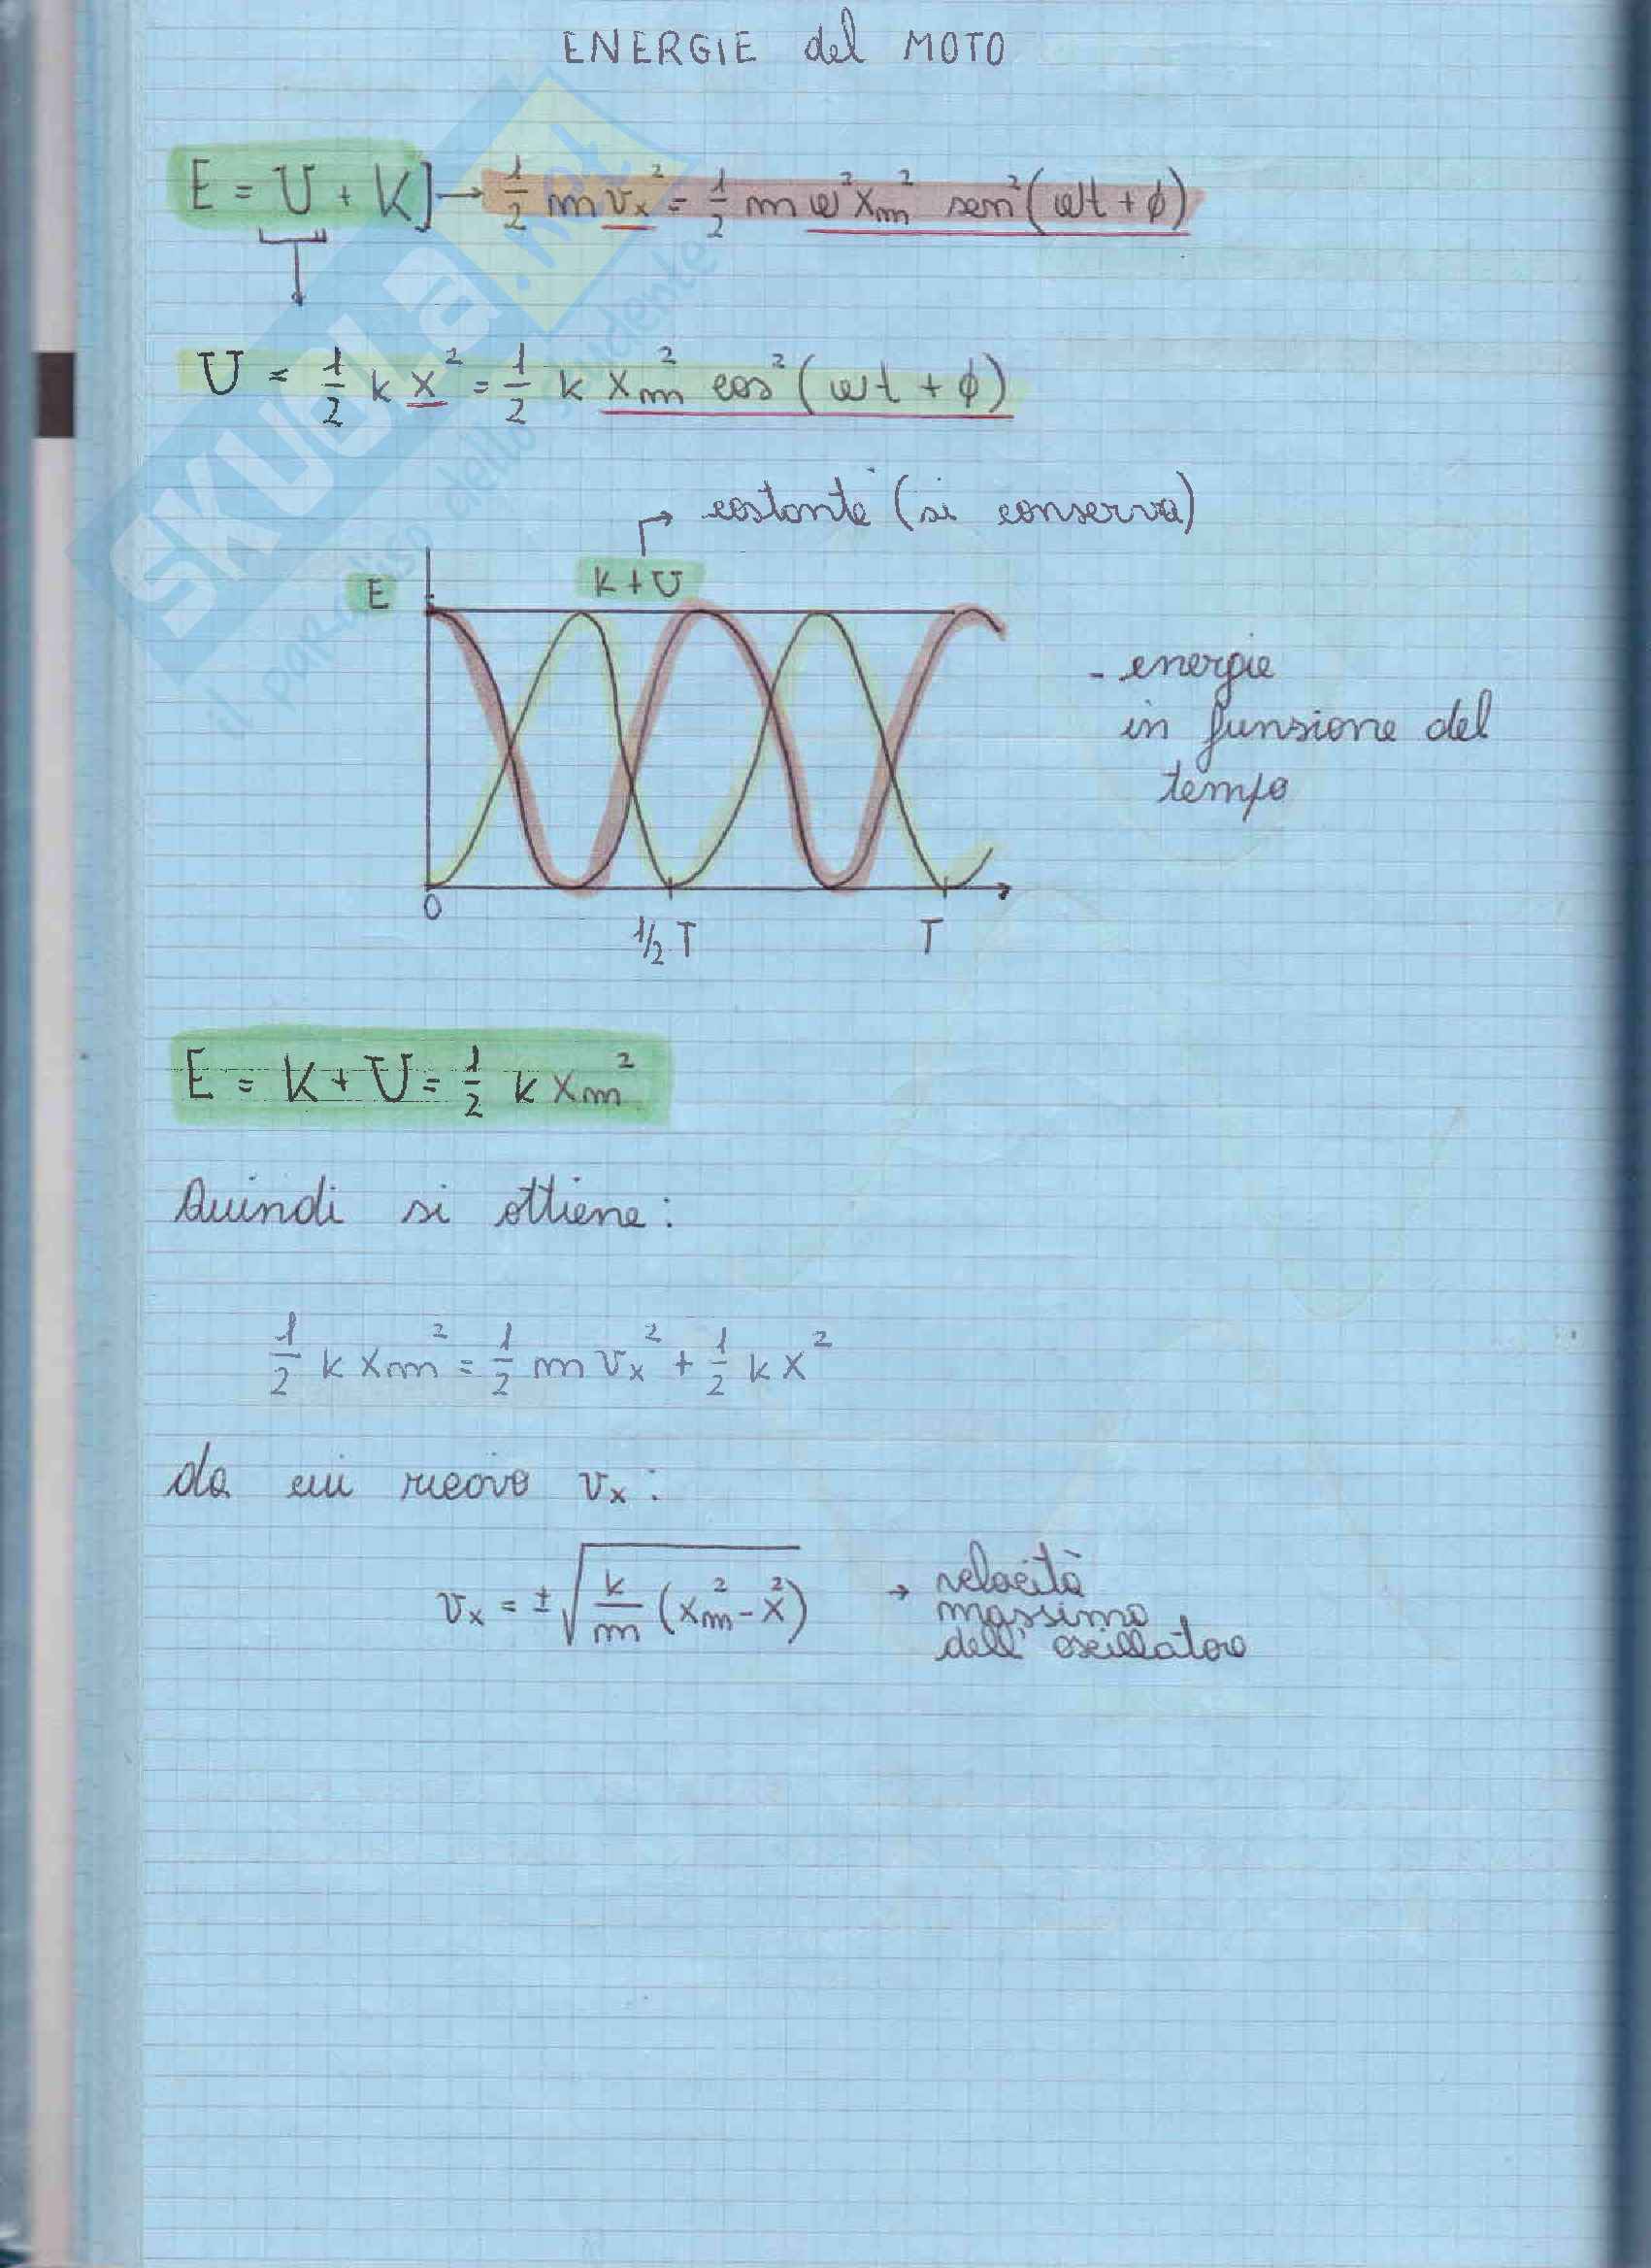 ENERGIE del MOTO
E = U + K] → 1/2 m vx² = 1/2 m ω² xm² sen² (ωt + ϕ)
U = 1/2 k x² = 1/2 k xm² cos² (ωt + ϕ)
→ costante (si conserva)
E
K + U
- energie
in funzione del
tempo
0
1/2 T
T
E = K + U = 1/2 k xm²
Quindi si ottiene:
1/2 k xm² = 1/2 m vx² + 1/2 k x²
da cui ricavo vx:
vx = ± √ k/m (xm² - x²)
→ velocità
massima
dell'oscillatore
SKUOLA.net
il paradiso dello studente